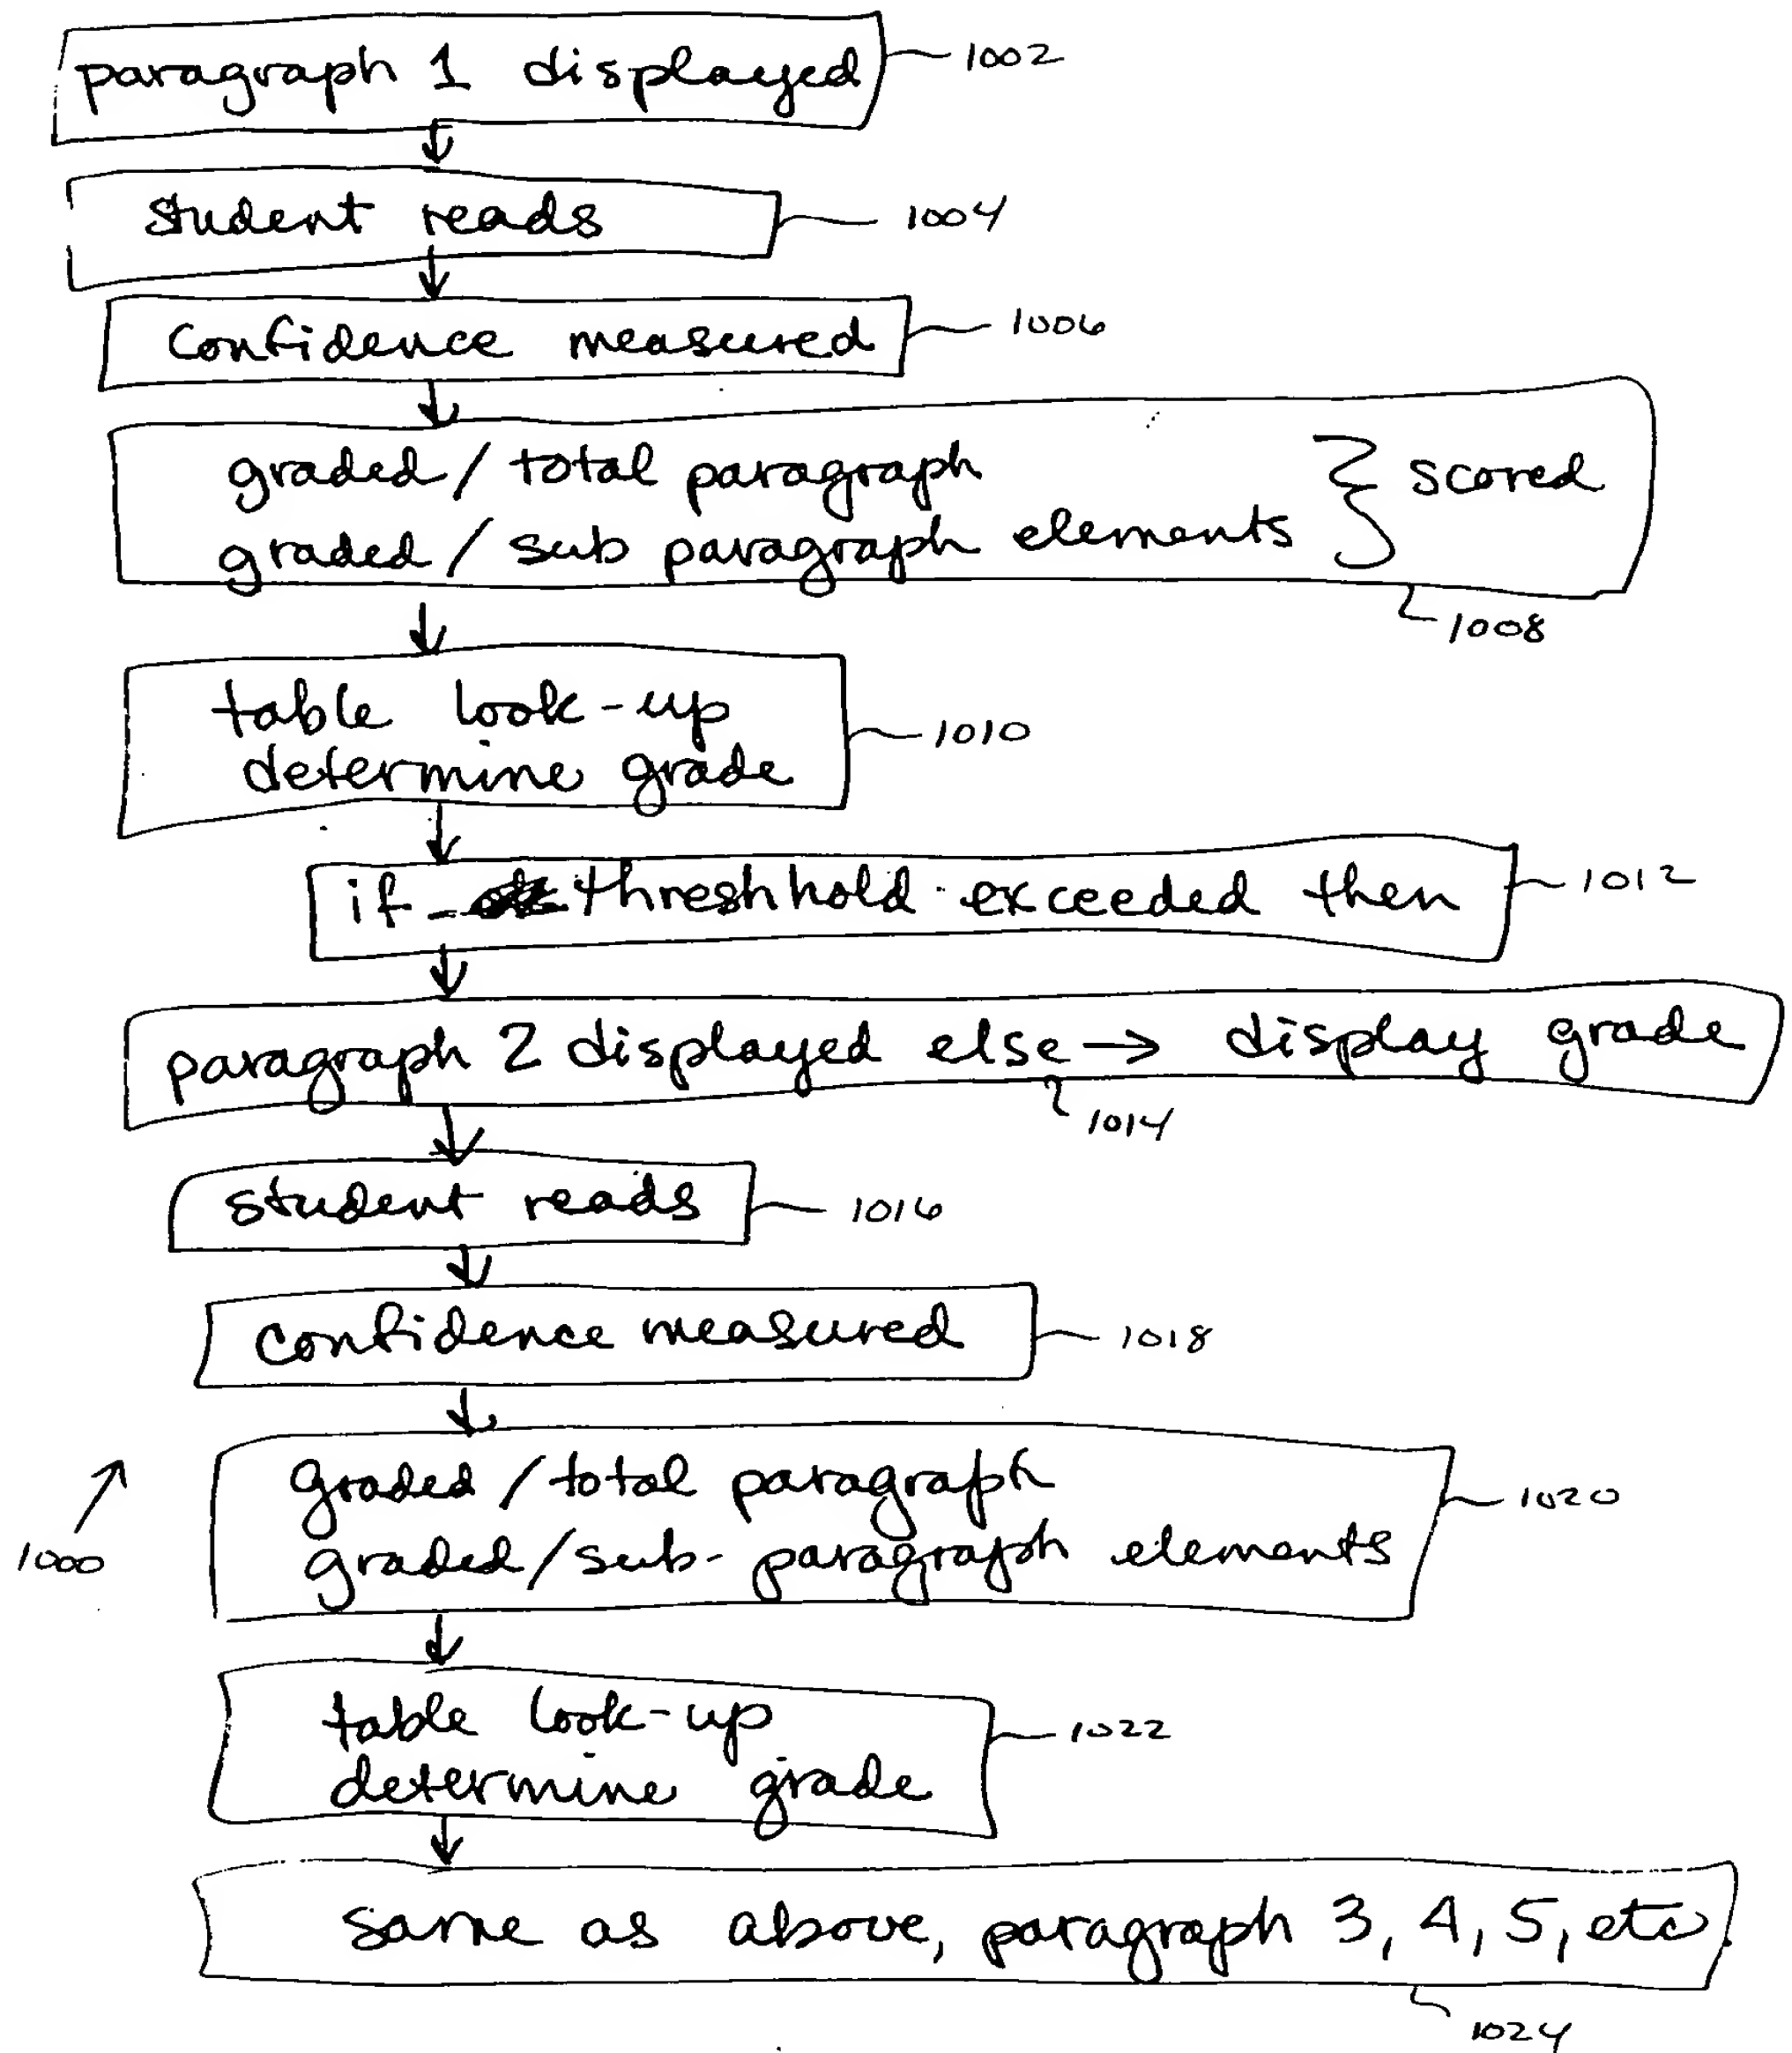 paragraph 1 displayed 1002
student reads 1004
confidence measured 1006
graded / total paragraph } scored
graded / sub paragraph elements
1008
table look-up
determine grade 1010
if threshhold exceeded then 1012
paragraph 2 displayed else → display grade
1014
student reads 1016
confidence measured 1018
graded / total paragraph
graded / sub-paragraph elements 1020
1000
table look-up
determine grade 1022
same as above, paragraph 3, 4, 5, etc.
1024